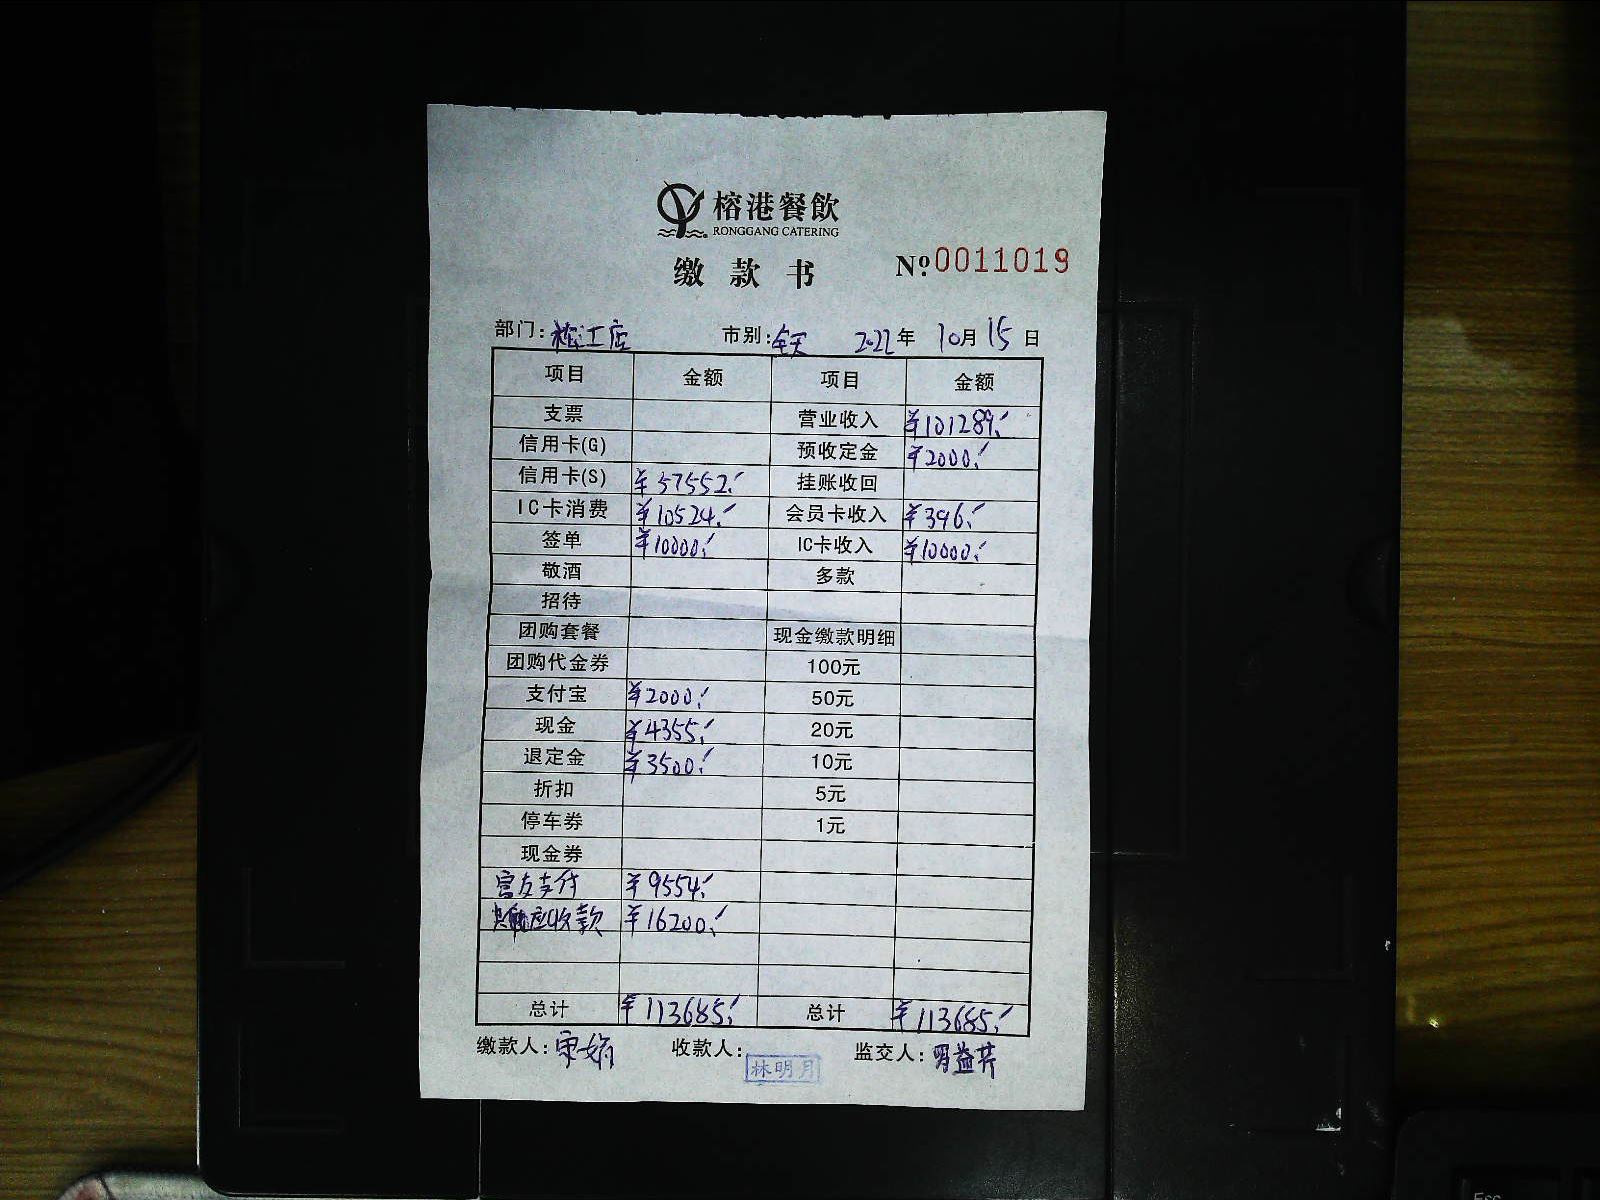 榕港餐飲
RONGGANG CATERING
缴款书 №:0011019
部门: 松江店 市别: 全天 2022年 10月 15日
项目 金额 项目 金额
支票 营业收入 ¥101289.-
信用卡(G) 预收定金 ¥2000.-
信用卡(S) ¥57552.- 挂账收回
IC卡消费 ¥10524.- 会员卡收入 ¥396.-
签单 ¥10000.- IC卡收入 ¥10000.-
敬酒 多款
招待
团购套餐 现金缴款明细
团购代金券 100元
支付宝 ¥2000.- 50元
现金 ¥4355.- 20元
退定金 ¥3500.- 10元
折扣 5元
停车券 1元
现金券
官方支付 ¥9554.-
应收款 ¥16200.-
总计 ¥113685.- 总计 ¥113685.-
缴款人: 收款人: 林明月 监交人:
Esc